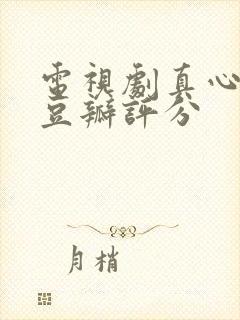 電視劇真心
豆瓣評分
月梢